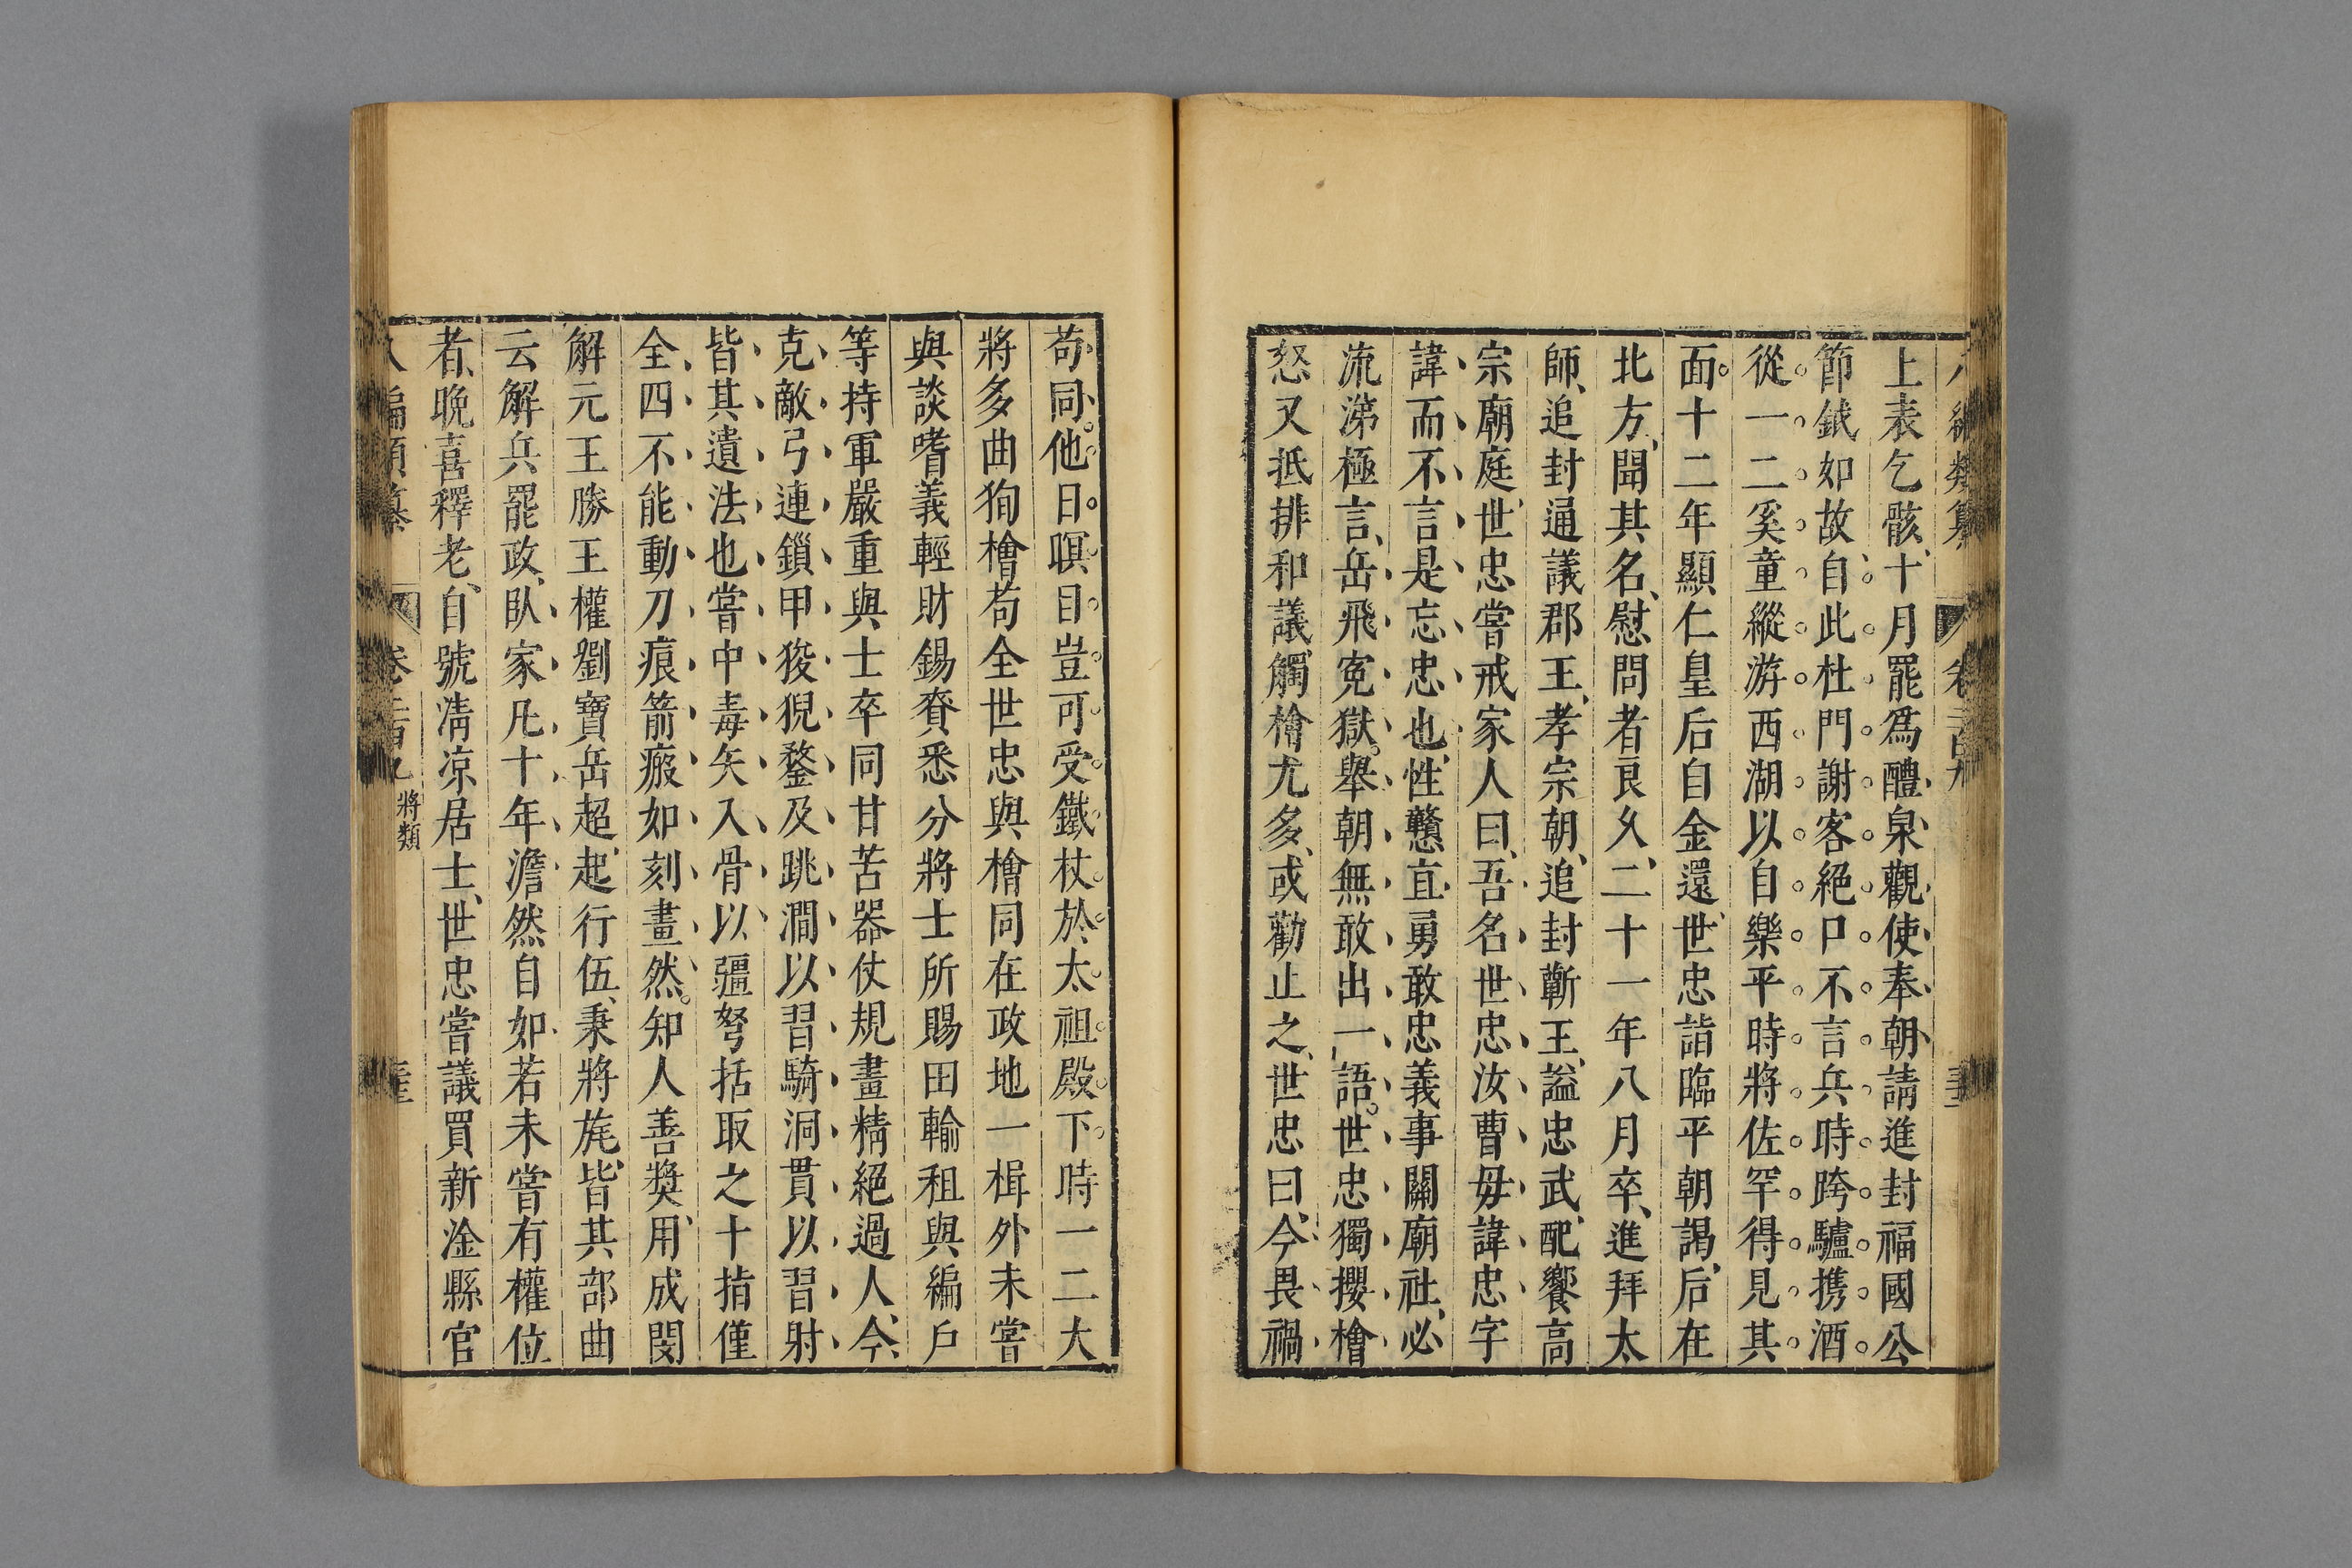 上表乞骸、十月罷爲醴泉觀使奉朝請進封福國公
節鉞如故、自此杜門謝客絕口不言兵時跨驢携酒
從一二奚童縱游西湖以自樂平時將佐罕得見其
面。十二年顯仁皇后自金還、世忠詣臨平朝謁、后在
北方、聞其名、慰問者良久、二十一年八月卒、進拜太
師、追封通議郡王、孝宗朝、追封蘄王、謚忠武、配饗高
宗廟庭、世忠嘗戒家人曰、吾名世忠汝曹毋諱忠字
諱而不言是忘忠也、性戇直勇敢忠義事關廟社、必
流涕極言、岳飛寃獄。舉朝無敢出一語。世忠獨攖檜
怒又抵排和議、觸檜尤多、或勸止之、世忠曰、今畏禍
苟同。他日瞑目豈可受鐵杖於太祖殿下時一二大
將多曲狥檜苟全世忠與檜同在政地一楫外未嘗
與談嗜義輕財錫賚悉分將士所賜田輸租與編戶
等持軍嚴重與士卒同甘苦器仗規畫精絕過人、今
克敵弓連鎖甲狻猊鍪及跳澗以習騎洞貫以習射
皆其遺法也嘗中毒矢入骨以彊弩括取之十指僅
全四不能動刀痕箭瘢如刻畫然。知人善奬用、成閔
解元王勝王權劉寶岳超、起行伍、秉將旄、皆其部曲
云解兵罷政、臥家凡十年澹然自如若未嘗有權位
者、晚喜釋老、自號凊凉居士、世忠嘗議買新淦縣官
將類